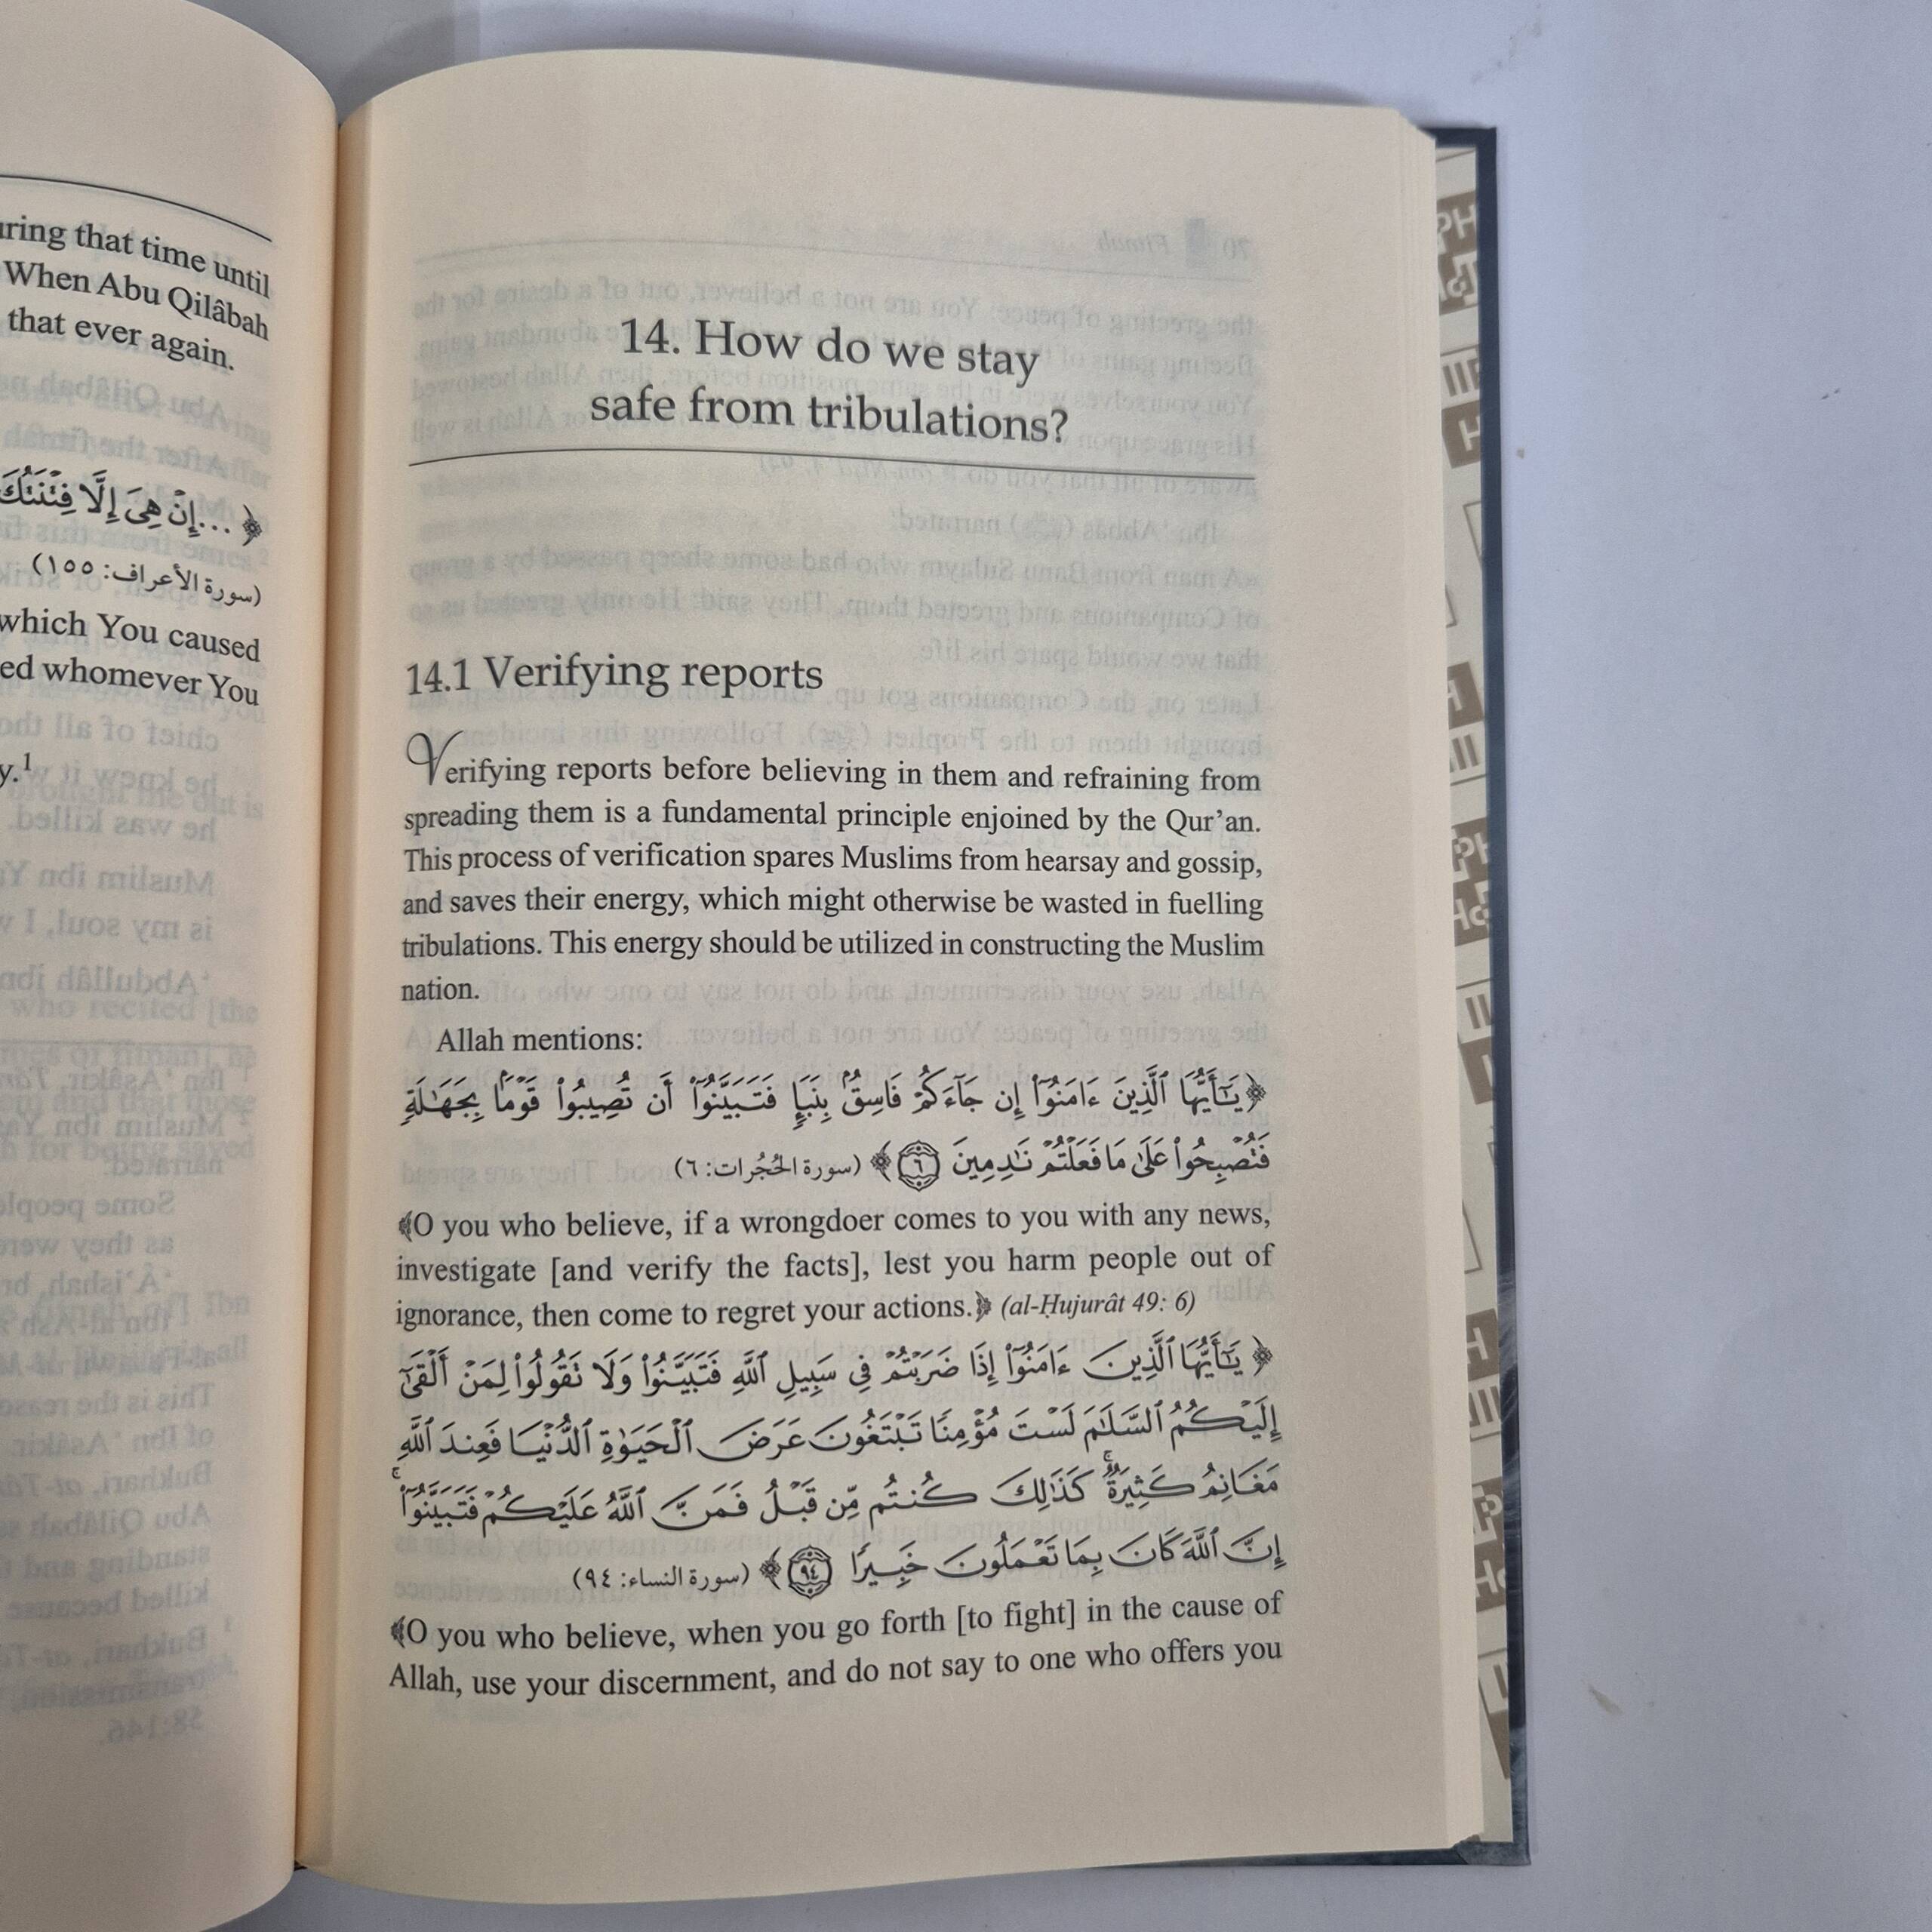 uring that time until
When Abu Qilâbah
that ever again.
﴿ ...إِنْ هِىَ إِلَّا فِتْنَتُكَ
(سورة الأعراف: ١٥٥)
which You caused
ed whomever You
y.1
14. How do we stay
safe from tribulations?
14.1 Verifying reports
Verifying reports before believing in them and refraining from
spreading them is a fundamental principle enjoined by the Qur’an.
This process of verification spares Muslims from hearsay and gossip,
and saves their energy, which might otherwise be wasted in fuelling
tribulations. This energy should be utilized in constructing the Muslim
nation.
Allah mentions:
﴿يَـٰٓأَيُّهَا ٱلَّذِينَ ءَامَنُوٓا۟ إِن جَآءَكُمْ فَاسِقٌۢ بِنَبَإٍ فَتَبَيَّنُوٓا۟ أَن تُصِيبُوا۟ قَوْمًۢا بِجَهَـٰلَةٍ
فَتُصْبِحُوا۟ عَلَىٰ مَا فَعَلْتُمْ نَـٰدِمِينَ ٦ ﴾ (سورة الحُجُرات: ٦)
﴾O you who believe, if a wrongdoer comes to you with any news,
investigate [and verify the facts], lest you harm people out of
ignorance, then come to regret your actions.﴿ (al-Ḥujurât 49: 6)
﴿ يَـٰٓأَيُّهَا ٱلَّذِينَ ءَامَنُوٓا۟ إِذَا ضَرَبْتُمْ فِى سَبِيلِ ٱللَّهِ فَتَبَيَّنُوا۟ وَلَا تَقُولُوا۟ لِمَنْ أَلْقَىٰٓ
إِلَيْكُمُ ٱلسَّلَـٰمَ لَسْتَ مُؤْمِنًا تَبْتَغُونَ عَرَضَ ٱلْحَيَوٰةِ ٱلدُّنْيَا فَعِندَ ٱللَّهِ
مَغَانِمُ كَثِيرَةٌ ۚ كَذَٰلِكَ كُنتُم مِّن قَبْلُ فَمَنَّ ٱللَّهُ عَلَيْكُمْ فَتَبَيَّنُوٓا۟ ۚ
إِنَّ ٱللَّهَ كَانَ بِمَا تَعْمَلُونَ خَبِيرًا ٩٤ ﴾ (سورة النساء: ٩٤)
﴾O you who believe, when you go forth [to fight] in the cause of
Allah, use your discernment, and do not say to one who offers you